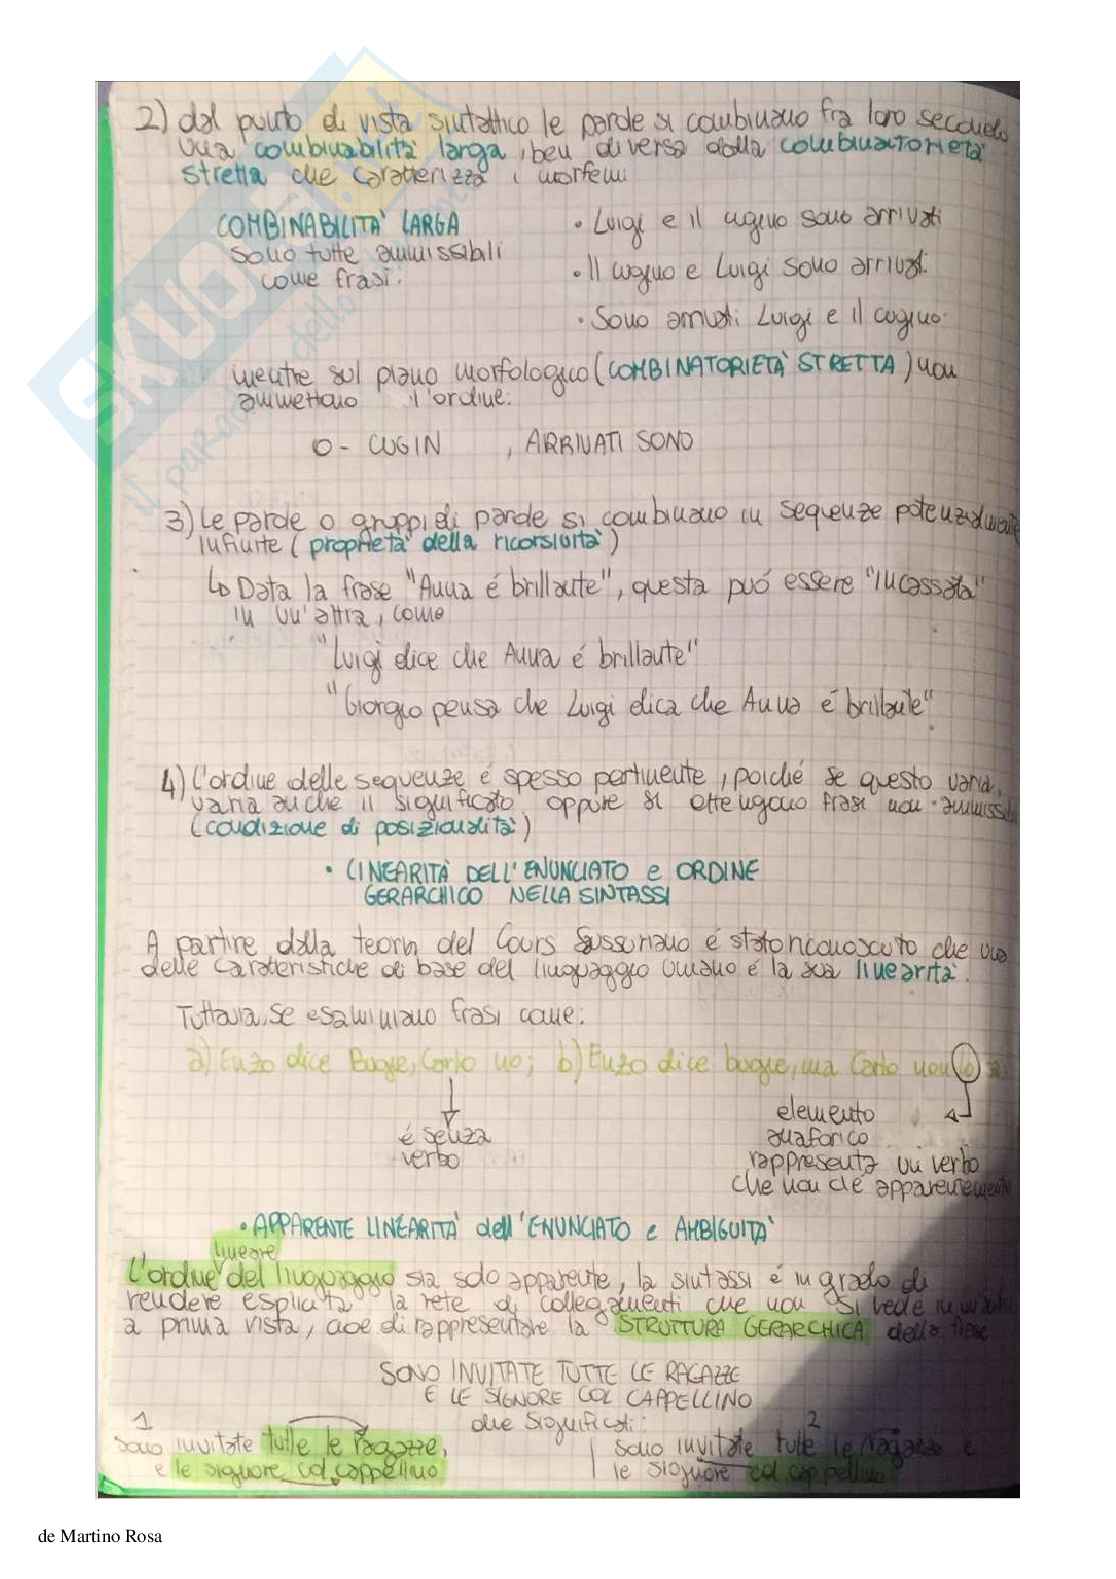 SKUOLA
il paradiso dello studente
2) dal punto di vista sintattico le parole si combinano fra loro secondo
una combinabilità larga, ben diversa dalla combinatorietà
stretta che caratterizza i morfemi
COMBINABILITÀ LARGA
sono tutte ammissibili
come frasi:
• Luigi e il cugino sono arrivati
• Il cugino e Luigi sono arrivati
• Sono arrivati Luigi e il cugino
mentre sul piano morfologico (COMBINATORIETÀ STRETTA) non
ammettono l'ordine:
O - CUGIN , ARRIVATI SONO
3) Le parole o gruppi di parole si combinano in sequenze potenzialmente
infinite (proprietà della ricorsività)
↳ Data la frase "Anna é brillante", questa può essere "incassata"
in un'altra, come
"Luigi dice che Anna é brillante"
"Giorgio pensa che Luigi dica che Anna é brillante"
4) L'ordine delle sequenze é spesso pertinente, poiché se questo varia,
varia anche il significato oppure si ottengono frasi non ammissibili
(condizione di posizionalità)
• LINEARITÀ DELL'ENUNCIATO e ORDINE
GERARCHICO NELLA SINTASSI
A partire dalla teoria del Cours Saussuriano é stato riconosciuto che una
delle caratteristiche di base del linguaggio umano é la sua linearità.
Tuttavia, se esaminiamo frasi come:
a) Enzo dice Bugie, Carlo no; b) Enzo dice bugie, ma Carlo non lo
é senza
verbo
elemento
anaforico
rappresenta un verbo
che non c'é apparentemente
• APPARENTE LINEARITÀ dell'ENUNCIATO e AMBIGUITÀ
lineare
L'ordine del linguaggio sia solo apparente, la sintassi é in grado di
rendere esplicita la rete di collegamenti che non si vede
a prima vista, cioe di rappresentare la STRUTTURA GERARCHICA della frase
SONO INVITATE TUTTE LE RAGAZZE
E LE SIGNORE COL CAPPELLINO
due significati:
1
sono invitate tutte le ragazze,
e le signore col cappellino
2
sono invitate tutte le ragazze e
le signore col cappellino
de Martino Rosa